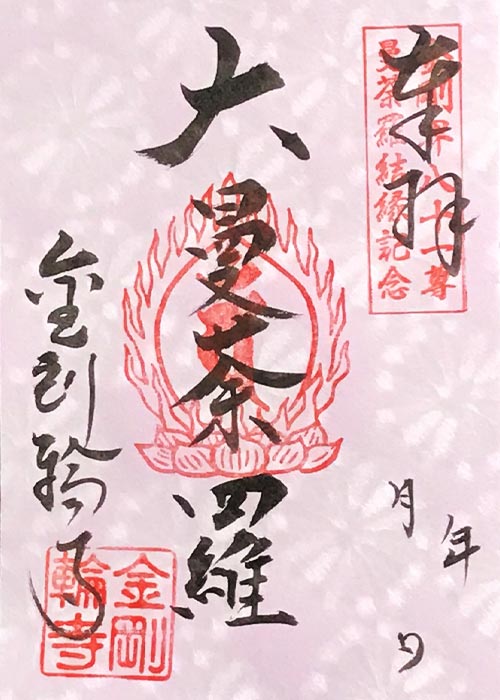 奉拝
金剛界八十一尊
曼荼羅結縁記念
年
月
日
大曼荼羅
金剛輪寺
金剛
輪寺